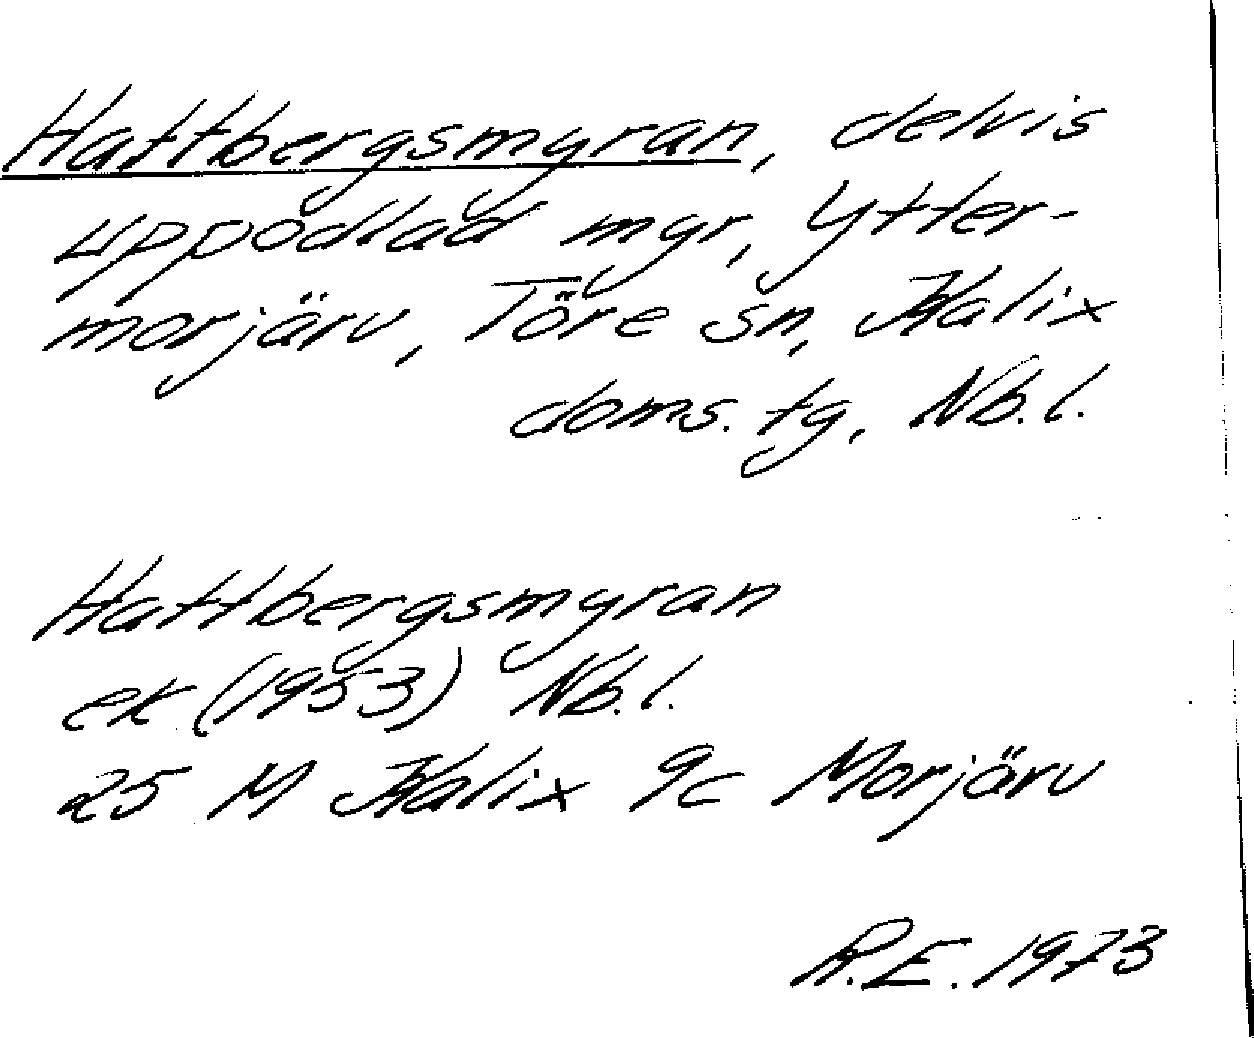 Hattbergsmyran, delvis
uppodlad myr, Ytter-
morjärv, Töre sn, Kalix
doms. tg, Nb.l.
Hattbergsmyran
ek (1953) Nb.l.
25 M Kalix 9c Morjärv
R.E. 1973